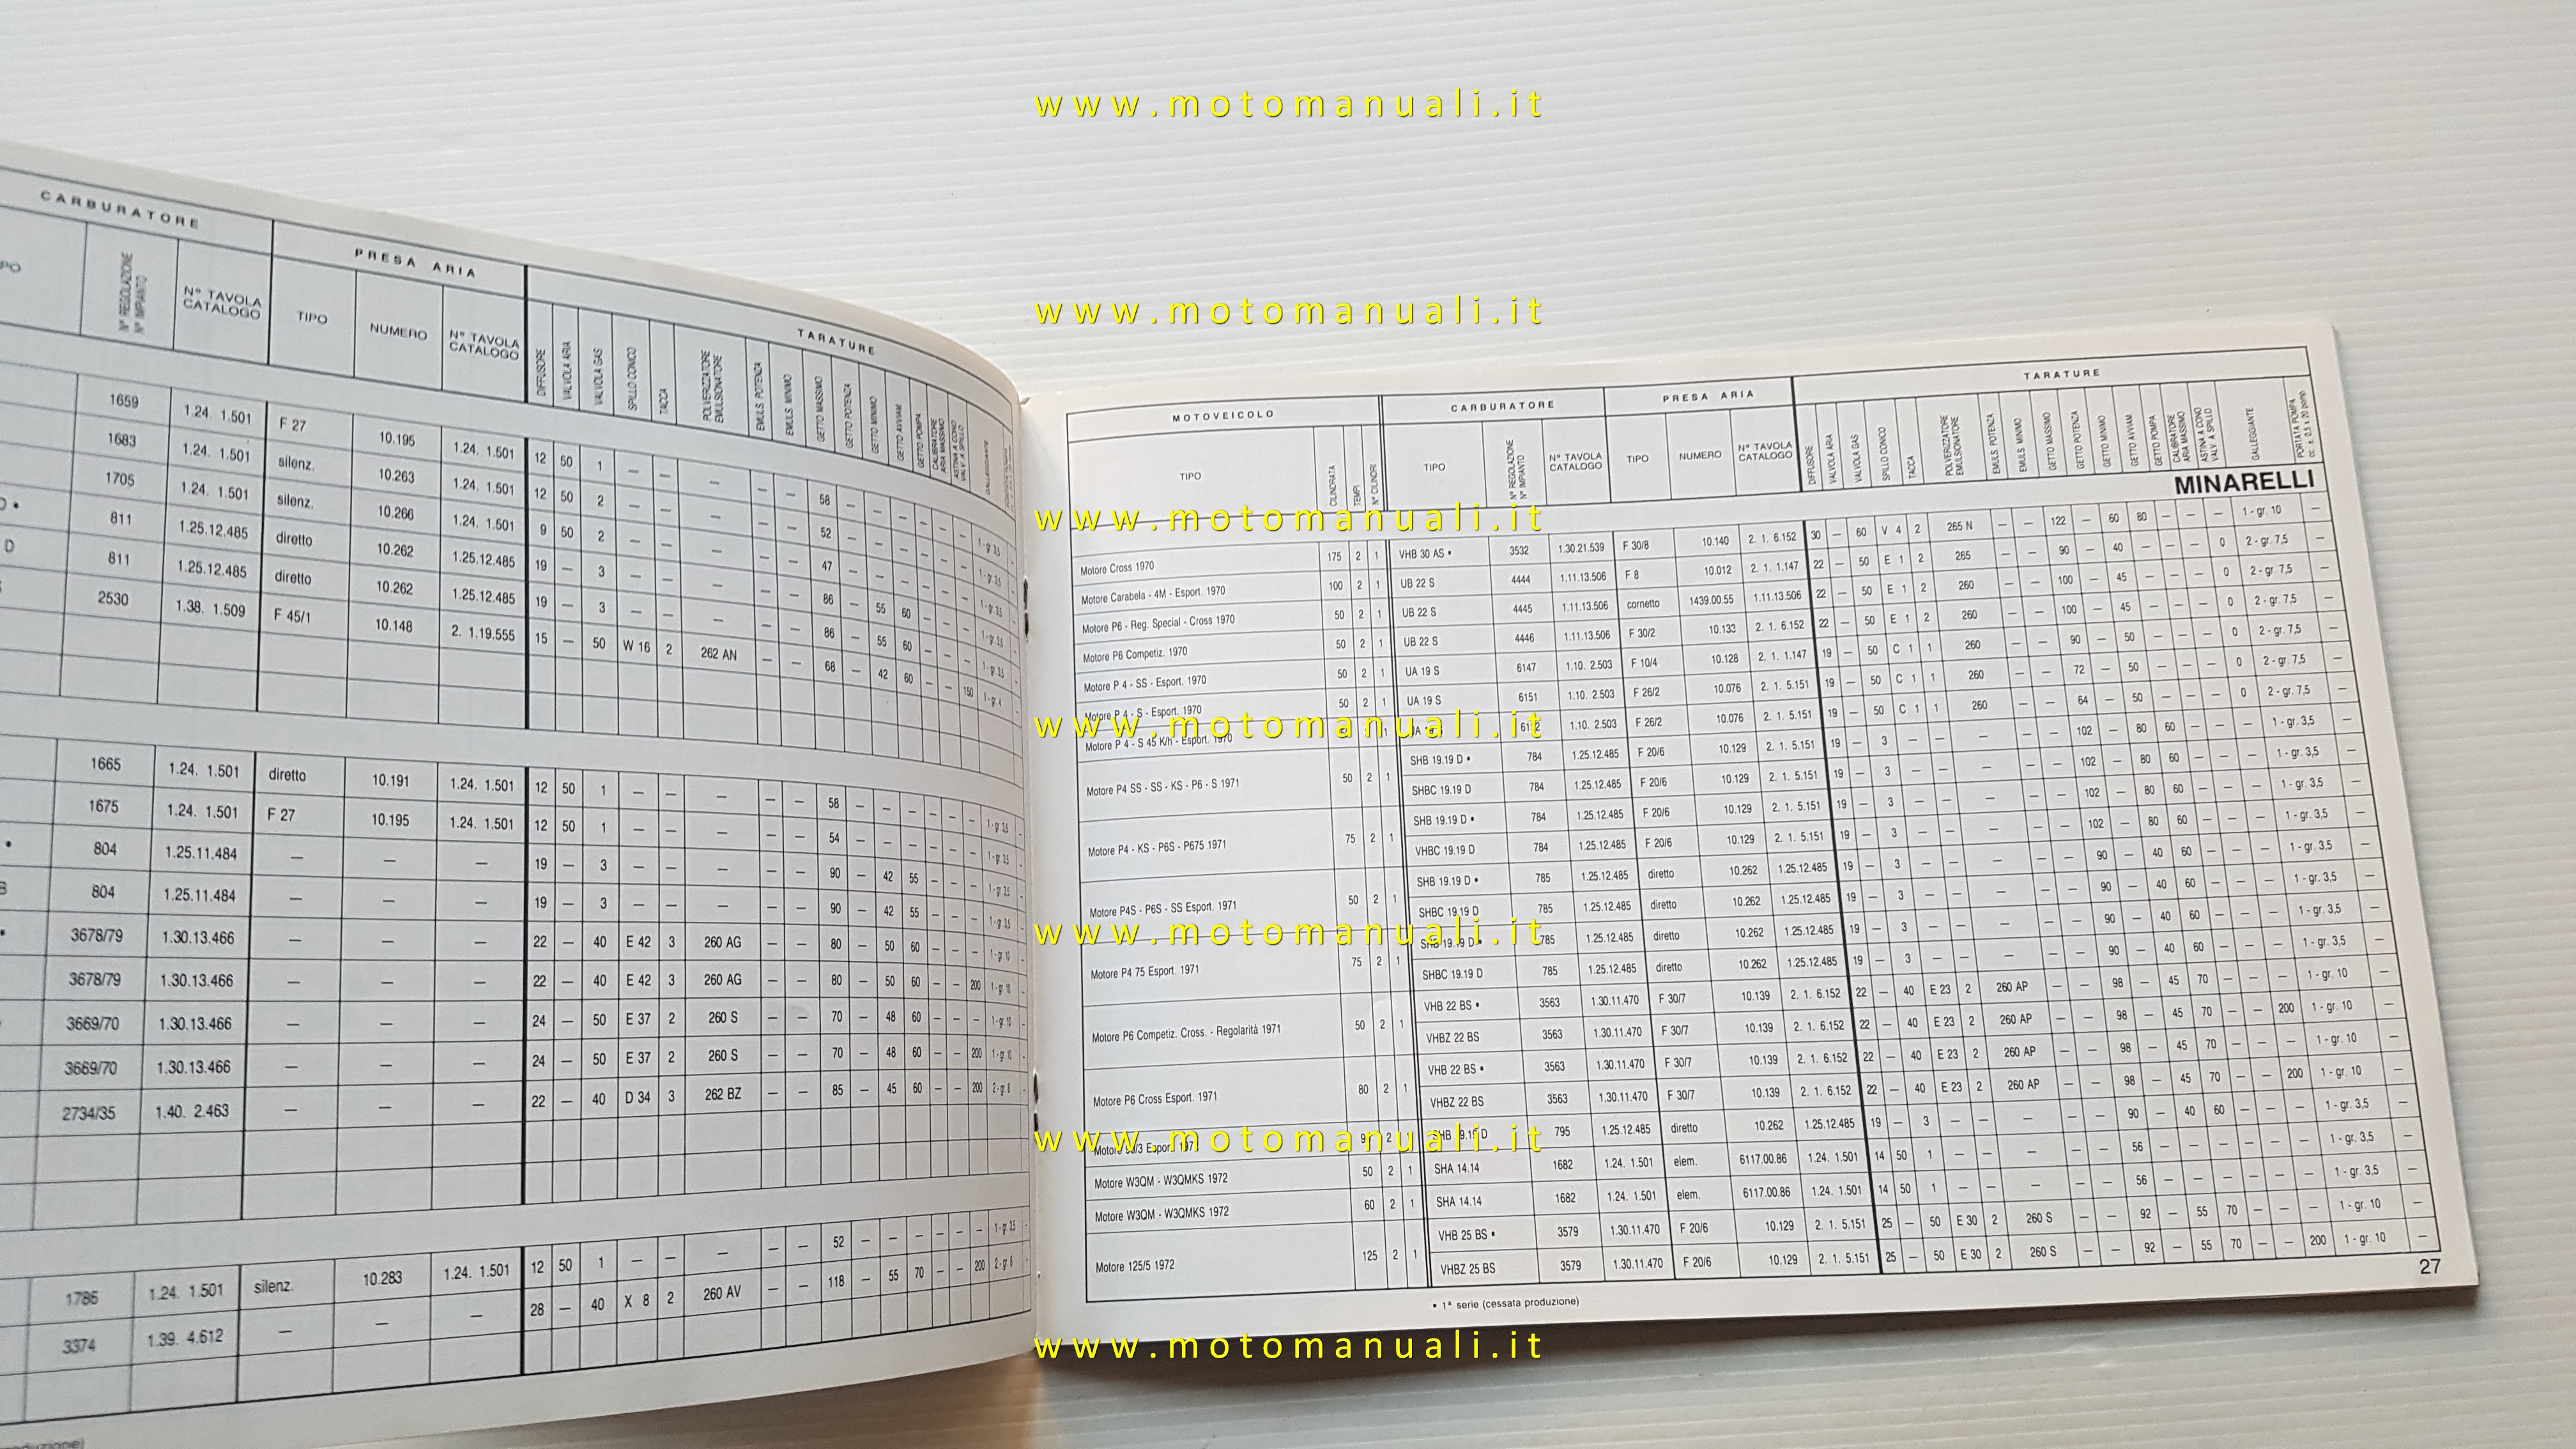 www.motomanuali.it
www.motomanuali.it
www.motomanuali.it
www.motomanuali.it
www.motomanuali.it
www.motomanuali.it
www.motomanuali.it
CARBURATORE PRESA ARIA TARATURE
N° REGOLAZIONE N° IMPIANTO N° TAVOLA CATALOGO TIPO NUMERO N° TAVOLA CATALOGO DIFFUSORE VALVOLA ARIA VALVOLA GAS SPILLO CONICO TACCA POLVERIZZATORE EMULSIONATORE EMULS. POTENZA EMULS. MINIMO GETTO MASSIMO GETTO POTENZA GETTO MINIMO GETTO AVVIAM. GETTO POMPA CALIBRATORE ARIA MASSIMO ASTINA A CONO VALV. A SPILLO GALLEGGIANTE
1659 1.24. 1.501 F 27 10.195 1.24. 1.501 12 50 1 — — — — — 58
1683 1.24. 1.501 silenz. 10.263 1.24. 1.501 12 50 2 — — — — — 52
1705 1.24. 1.501 silenz. 10.266 1.24. 1.501 9 50 2 — — — — — 47
811 1.25.12.485 diretto 10.262 1.25.12.485 19 — 3 — — — — — 86 — 55 60
D 811 1.25.12.485 diretto 10.262 1.25.12.485 19 — 3 — — — — — 86 — 55 60
2530 1.38. 1.509 F 45/1 10.148 2. 1.19.555 15 — 50 W 16 2 262 AN — — 68 — 42 60 — — 150 1 - gr. 4
1665 1.24. 1.501 diretto 10.191 1.24. 1.501 12 50 1 — — — — — 58
1675 1.24. 1.501 F 27 10.195 1.24. 1.501 12 50 1 — — — — — 54
• 804 1.25.11.484 — — — 19 — 3 — — — — — 90 — 42 55
804 1.25.11.484 — — — 19 — 3 — — — — — 90 — 42 55
3678/79 1.30.13.466 — — — 22 — 40 E 42 3 260 AG — — 80 — 50 60 — — — 1 - gr. 10
3678/79 1.30.13.466 — — — 22 — 40 E 42 3 260 AG — — 80 — 50 60 — — 200 1 - gr. 10
3669/70 1.30.13.466 — — — 24 — 50 E 37 2 260 S — — 70 — 48 60 — — — 1 - gr. 10
3669/70 1.30.13.466 — — — 24 — 50 E 37 2 260 S — — 70 — 48 60 — — 200 1 - gr. 10
2734/35 1.40. 2.463 — — — 22 — 40 D 34 3 262 BZ — — 85 — 45 60 — — 200
1786 1.24. 1.501 silenz. 10.283 1.24. 1.501 12 50 1 — — — — — 52
3374 1.39. 4.612 — — — 28 — 40 X 8 2 260 AV — — 118 — 55 70 — — 200
MOTOVEICOLO CARBURATORE PRESA ARIA TARATURE
TIPO CILINDRATA TEMPI N° CILINDRI TIPO N° REGOLAZIONE N° IMPIANTO N° TAVOLA CATALOGO TIPO NUMERO N° TAVOLA CATALOGO DIFFUSORE VALVOLA ARIA VALVOLA GAS SPILLO CONICO TACCA POLVERIZZATORE EMULSIONATORE EMULS. POTENZA EMULS. MINIMO GETTO MASSIMO GETTO POTENZA GETTO MINIMO GETTO AVVIAM. GETTO POMPA CALIBRATORE ARIA MASSIMO ASTINA A CONO VALV. A SPILLO GALLEGGIANTE PORTATA POMPA cc. ± 0,5 x 20 pomp.
MINARELLI
Motore Cross 1970 175 2 1 VHB 30 AS • 3532 1.30.21.539 F 30/8 10.140 2. 1. 6.152 30 — 60 V 4 2 265 N — — 122 — 60 80 — — — 1 - gr. 10 —
Motore Carabela - 4M - Esport. 1970 100 2 1 UB 22 S 4444 1.11.13.506 F 8 10.012 2. 1. 1.147 22 — 50 E 1 2 265 — — 90 — 40 — — — 0 2 - gr. 7,5 —
Motore P6 - Reg. Special - Cross 1970 50 2 1 UB 22 S 4445 1.11.13.506 cornetto 1439.00.55 1.11.13.506 22 — 50 E 1 2 260 — — 100 — 45 — — — 0 2 - gr. 7,5 —
Motore P6 Competiz. 1970 50 2 1 UB 22 S 4446 1.11.13.506 F 30/2 10.133 2. 1. 6.152 22 — 50 E 1 2 260 — — 100 — 45 — — — 0 2 - gr. 7,5 —
Motore P 4 - SS - Esport. 1970 50 2 1 UA 19 S 6147 1.10. 2.503 F 10/4 10.128 2. 1. 1.147 19 — 50 C 1 1 260 — — 90 — 50 — — — 0 2 - gr. 7,5 —
Motore P 4 - S - Esport. 1970 50 2 1 UA 19 S 6151 1.10. 2.503 F 26/2 10.076 2. 1. 5.151 19 — 50 C 1 1 260 — — 72 — 50 — — — 0 2 - gr. 7,5 —
Motore P 4 - S 45 K/h - Esport. 1970 1 1.10. 2.503 F 26/2 10.076 2. 1. 5.151 19 — 50 C 1 1 260 — — 64 — 50 — — — 0 2 - gr. 7,5 —
Motore P4 SS - SS - KS - P6 - S 1971 50 2 1 SHB 19.19 D • 784 1.25.12.485 F 20/6 10.129 2. 1. 5.151 19 — 3 — — — — — 102 — 80 60 — — — 1 - gr. 3,5 —
SHBC 19.19 D 784 1.25.12.485 F 20/6 10.129 2. 1. 5.151 19 — 3 — — — — — 102 — 80 60 — — — 1 - gr. 3,5 —
Motore P4 - KS - P6S - P675 1971 75 2 1 SHB 19.19 D • 784 1.25.12.485 F 20/6 10.129 2. 1. 5.151 19 — 3 — — — — — 102 — 80 60 — — — 1 - gr. 3,5 —
VHBC 19.19 D 784 1.25.12.485 F 20/6 10.129 2. 1. 5.151 19 — 3 — — — — — 102 — 80 60 — — — 1 - gr. 3,5 —
Motore P4S - P6S - SS Esport. 1971 50 2 1 SHB 19.19 D • 785 1.25.12.485 diretto 10.262 1.25.12.485 19 — 3 — — — — — 90 — 40 60 — — — 1 - gr. 3,5 —
SHBC 19.19 D 785 1.25.12.485 diretto 10.262 1.25.12.485 19 — 3 — — — — — 90 — 40 60 — — — 1 - gr. 3,5 —
Motore P4 75 Esport. 1971 75 2 1 SHB 19.19 D • 785 1.25.12.485 diretto 10.262 1.25.12.485 19 — 3 — — — — — 90 — 40 60 — — — 1 - gr. 3,5 —
SHBC 19.19 D 785 1.25.12.485 diretto 10.262 1.25.12.485 19 — 3 — — — — — 90 — 40 60 — — — 1 - gr. 3,5 —
Motore P6 Competiz. Cross. - Regolarità 1971 50 2 1 VHB 22 BS • 3563 1.30.11.470 F 30/7 10.139 2. 1. 6.152 22 — 40 E 23 2 260 AP — — 98 — 45 70 — — — 1 - gr. 10 —
VHBZ 22 BS 3563 1.30.11.470 F 30/7 10.139 2. 1. 6.152 22 — 40 E 23 2 260 AP — — 98 — 45 70 — — 200 1 - gr. 10 —
Motore P6 Cross Esport. 1971 80 2 1 VHB 22 BS • 3563 1.30.11.470 F 30/7 10.139 2. 1. 6.152 22 — 40 E 23 2 260 AP — — 98 — 45 70 — — — 1 - gr. 10 —
VHBZ 22 BS 3563 1.30.11.470 F 30/7 10.139 2. 1. 6.152 22 — 40 E 23 2 260 AP — — 98 — 45 70 — — 200 1 - gr. 10 —
795 1.25.12.485 diretto 10.262 1.25.12.485 19 — 3 — — — — — 90 — 40 60 — — — 1 - gr. 3,5 —
Motore W3QM - W3QMKS 1972 50 2 1 SHA 14.14 1682 1.24. 1.501 elem. 6117.00.86 1.24. 1.501 14 50 1 — — — — — 56 — — — — — — 1 - gr. 3,5 —
Motore W3QM - W3QMKS 1972 60 2 1 SHA 14.14 1682 1.24. 1.501 elem. 6117.00.86 1.24. 1.501 14 50 1 — — — — — 56 — — — — — — 1 - gr. 3,5 —
Motore 125/5 1972 125 2 1 VHB 25 BS • 3579 1.30.11.470 F 20/6 10.129 2. 1. 5.151 25 — 50 E 30 2 260 S — — 92 — 55 70 — — — 1 - gr. 10 —
VHBZ 25 BS 3579 1.30.11.470 F 20/6 10.129 2. 1. 5.151 25 — 50 E 30 2 260 S — — 92 — 55 70 — — 200 1 - gr. 10 —
• 1ª serie (cessata produzione)
27